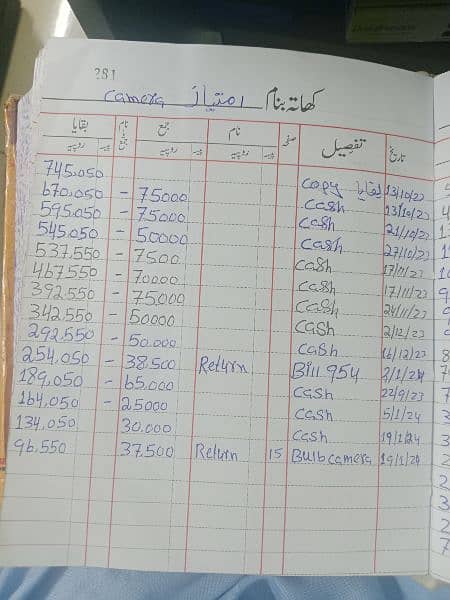 281
کھاتہ بنام امتیاز camera
تاریخ تفصیل صفحہ نام جمع نام جمع بقایا
پیسہ روپیہ پیسہ روپیہ پیسہ روپیہ
745,050 copy بقایا 13/10/23
670,050 - 75000 cash 13/10/23
595,050 - 75000 cash 21/10/23
545,050 - 50000 cash 27/10/23
537,550 - 7500 cash
467,550 - 70000 cash 17/11/23
392,550 - 75000 cash 24/11/23
342,550 - 50000 cash 2/12/23
292,550 - 50,000 cash 16/12/23
254,050 - 38,500 Return Bill 954 2/1/24
189,050 - 65,000 cash 22/9/23
164,050 - 25000 cash 5/1/24
134,050 30,000 cash 19/1/24
96,550 37,500 Return 15 Bulb camera 19/1/24